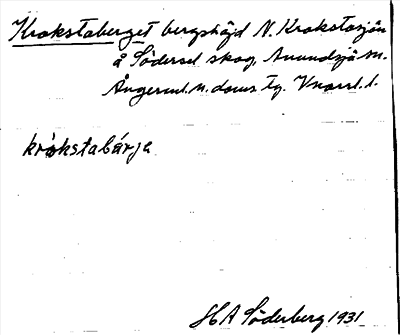 Krokstaberget bergshöjd N. Krokstasjön
å Södersel skog, Anundsjö sn.
Ångerml. n. doms tg. Vnorrl. l.
krokstabärja
HA Söderberg 1931